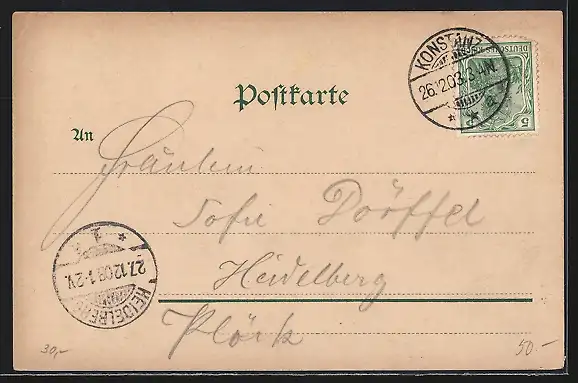 KONSTANZ
26.12.03.
DEUTSCHES REICH
5
Postkarte
An
Fräulein
Sofie Dörffel
Heidelberg
Plöck
HEIDELBERG
27.12.03.1-2V.
30,-
50.-